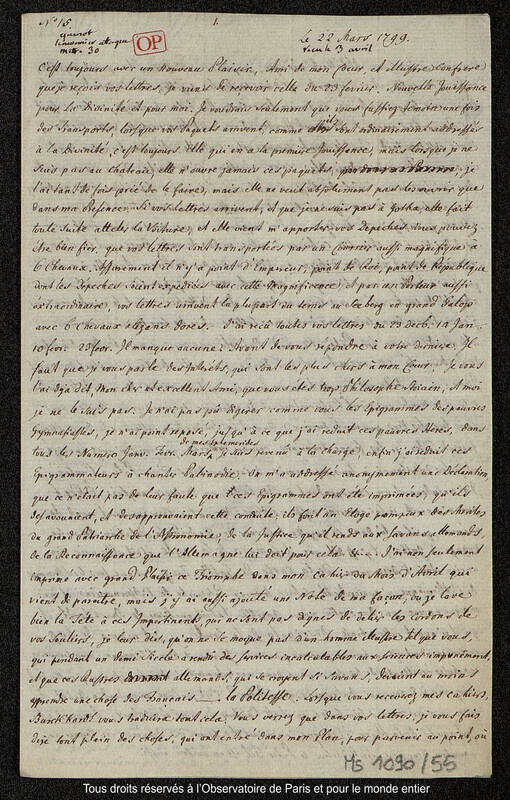 N° 15.
1.
Le 22 Mars 1799.
OP
reçu le 3 avril
C'est toujours avec un nouveau Plaisir, Ami de mon Cœur, et illustre Confrere
que je reçois vos lettres, je viens de recevoir celle du 23 fevrier. Nouvelle Jouissance
pour la Divinité et pour moi. Je voudrois seulement que vous fussiez temoin une fois
des Transports, lorsque vos Paquets arrivent, comme ils sont ordinairement addressés
à la Divinité, c'est toujours Elle qui en a la premiere Jouissance, mais lorsque je ne
suis pas au chateau, elle n'ouvre jamais ces paquets, je
l'ai tant de fois prié de le faire, mais elle ne veut absolument pas les ouvrir que
dans ma Presence. Si vos lettres arrivent, et que je ne suis pas à Gotha, elle fait
toute suite atteler la Voiture, et elle vient m'apporter vos Depeches. Vous pouvez
être bien fier, que vos lettres sont transportées par un Courier aussi magnifique à
6 Chevaux. Assurement il n'y a point d'Empereur, point de Roi, point de République
dont les Depeches soient expediées avec cette Magnificence, et par un Porteur aussi
extraordinaire, vos lettres arrivent la plupart du tems au Seeberg en grand Galop
avec 6 Chevaux Alezans dorés. J'ai reçû toutes vos lettres du 23 decb. 14 Jan.
10 fevr. 23 fevr. Il manque aucune. Avant de vous repondre à votre derniere. Il
faut que je vous parle des Interêts, qui sont les plus chers à mon Cœur. Je vous
l'ai déja dit, Mon cher et excellent Ami, que vous etes trop Philosophe Stoicien, et moi
je ne le suis pas. Je n'ai pas pû digérer comme vous les Epigrammes des pauvres
Gymnasiastes, je n'ai point reposé, jusqu'à ce que j'ai reduit ces pauvres Heres, dans
de mes Ephemerides
tous les Numeros Janv. Fevr. Mars, je suis revenu à la charge, enfin j'ai reduit ces
Epigrammateurs à chanter Palinodie. On m'a addressé anonymement une Déclaration
que ce n'etait pas de leur faute que ces Epigrammes ont été imprimées, qu'ils
desavouaient, et desapprouvaient cette conduite; ils font un Eloge pompeux des Merites
du grand Patriarche de l'Astronomie, de la Justice qu'il rends aux Savans allemands,
de la Reconnaissance que l'Allemagne lui doit pour cela &c. J'ai non seulement
imprimé avec grand Plaisir ce Triomphe dans mon Cahier du Mois d'Avril qui
vient de paroitre, mais j'y ai aussi ajouté une Note de ma façon, où je lave
bien la tête à ces Impertinents qui ne sont pas dignes de delier les Cordons de
vos Souliers, je leur dis, qu'on ne se moque pas d'un homme illustre tel que vous,
qui pendant un demi Siecle a rendu des services incalculables aux sciences impunement,
et que ces Cuistres allemands, qui se croyent si Savans, devaient au moins
apprendre une chose des Francais — la Politesse. Lorsque vous recevrez mes cahiers,
Burckhardt vous traduira tout cela. Vous verrez que dans vos lettres, je vous fais
dire tout plein des choses, qui ont entré dans mon Plan, pour parvenir au point, où
Ms 1090/55
Tous droits réservés à l'Observatoire de Paris et pour le monde entier